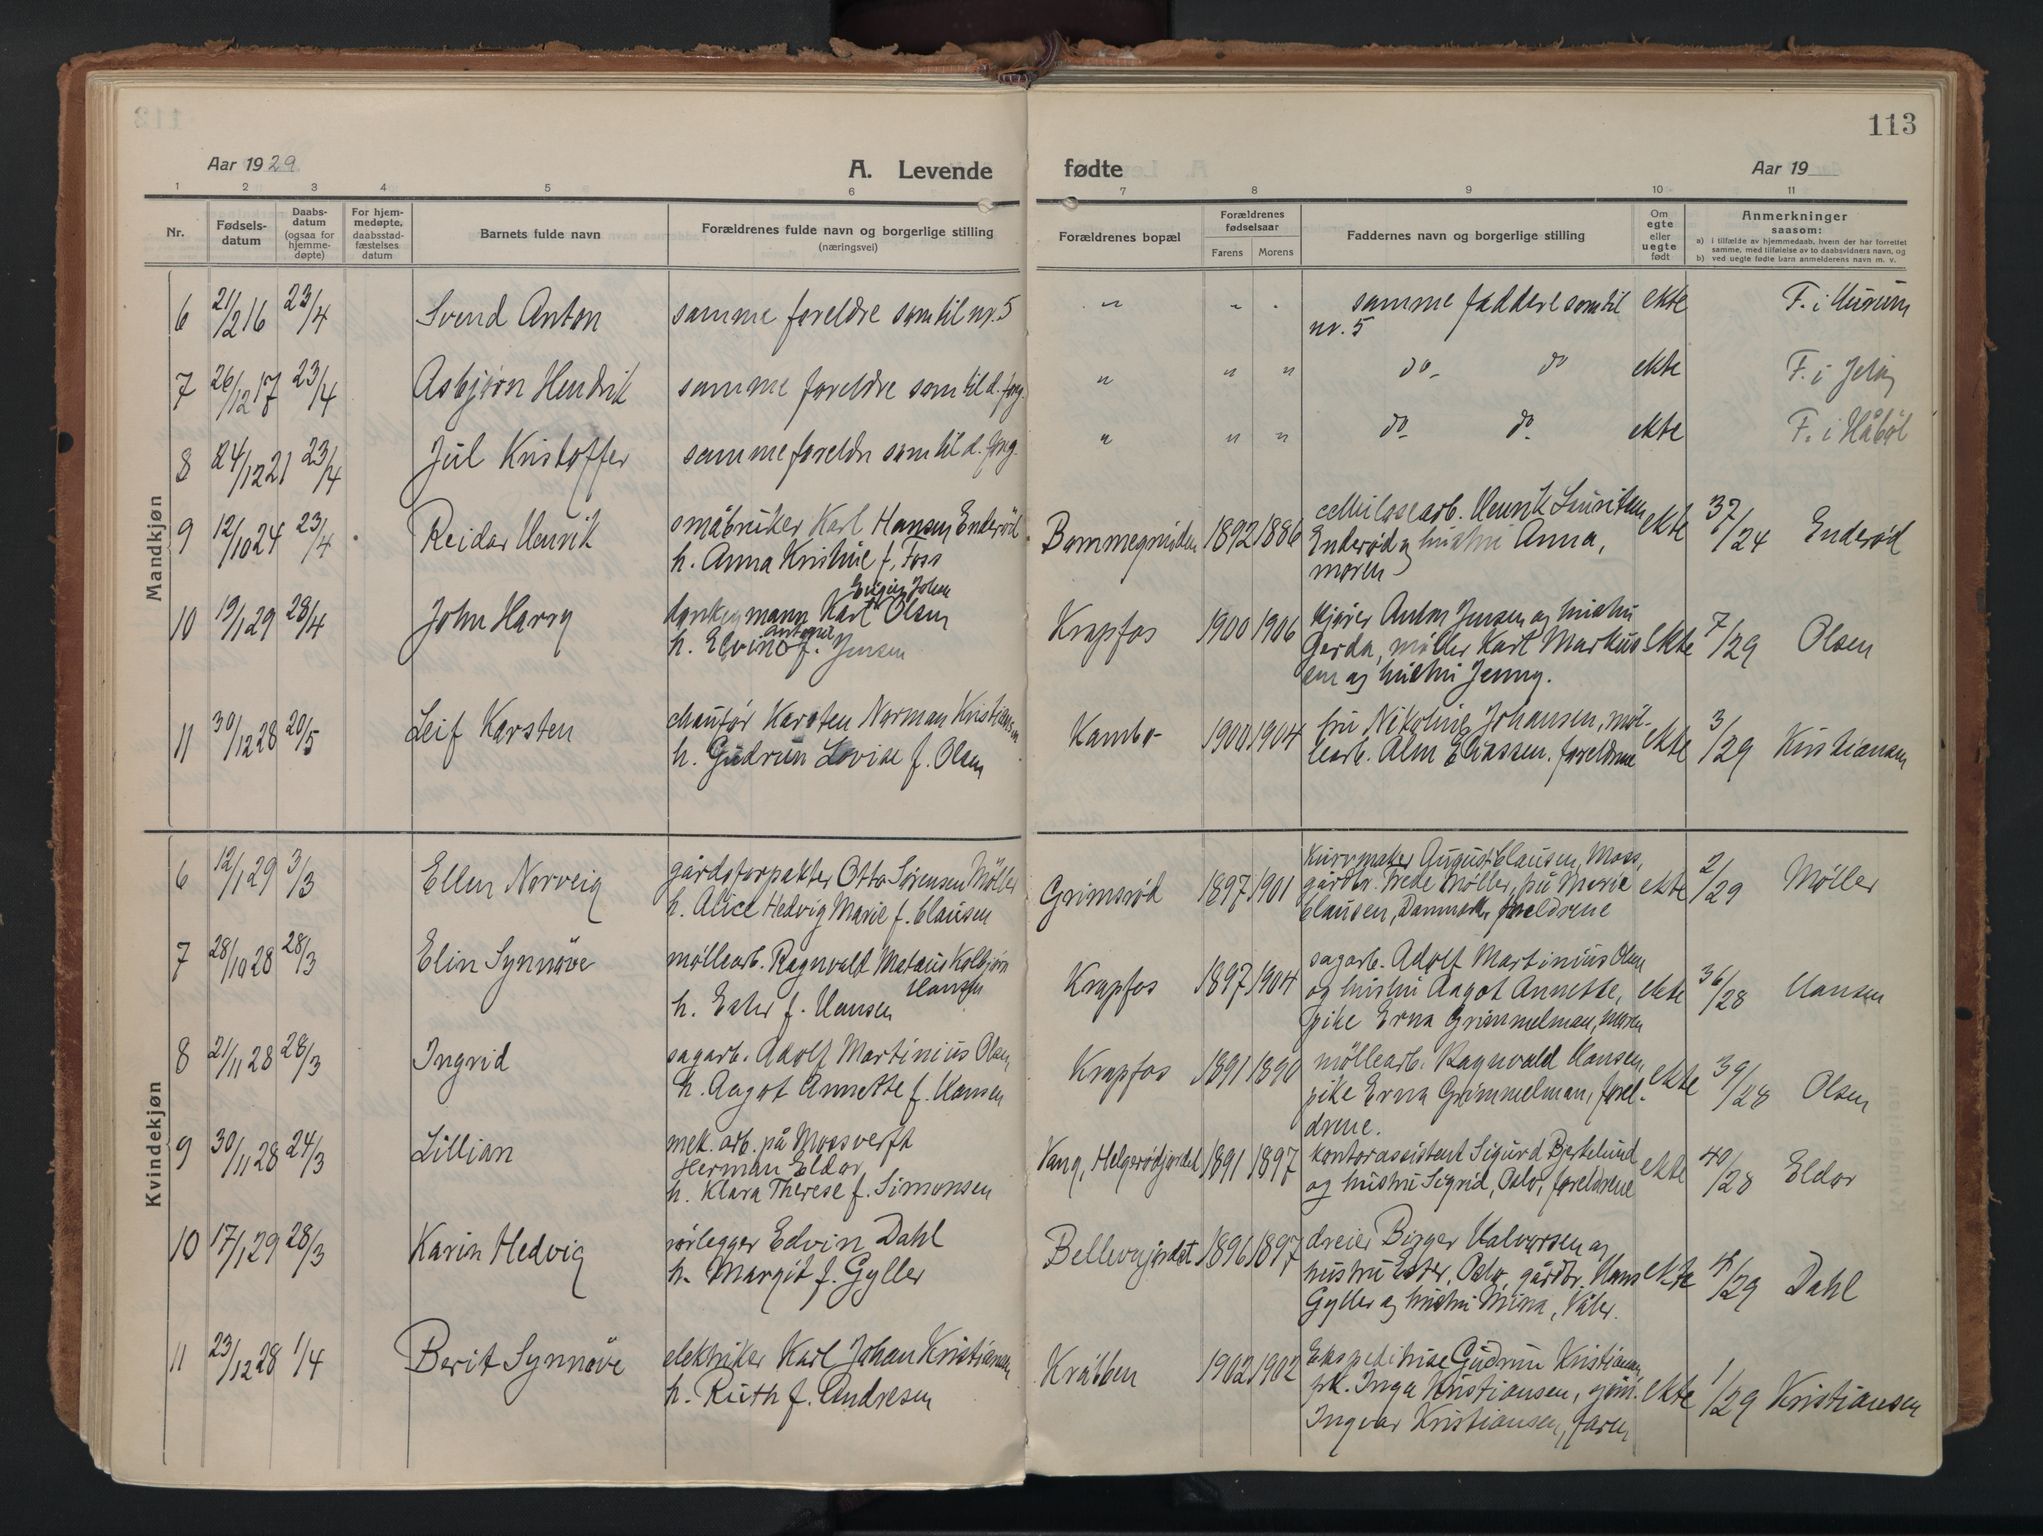 113
Aar 1929
A. Levende
fødte
Aar 19
1 2 3 4 5 6 7 8 9 10 11
Nr.
Fødsels-
datum
Daabs-
datum
(ogsaa for
hjemme-
døpte)
For hjem-
medøpte,
daabsstad-
fæstelses
datum
Barnets fulde navn
Forældrenes fulde navn og borgerlige stilling
(næringsvei)
Forældrenes bopæl
Forældrenes
fødselsaar
Farens Morens
Faddernes navn og borgerlige stilling
Om
egte
eller
uegte
født
Anmerkninger
saasom:
a) i tilfælde av hjemmedaab, hvem der har forrettet
samme, med tilføielse av to daabsvidners navn, og
b) ved uegte fødte barn anmelderens navn m. v.
Mandkjøn
6 21/2 16 23/4 Svend Anton samme foreldre som til nr. 5 " " " samme faddere som til ekte F. i Hurum
nr. 5
7 26/12 17 23/4 Asbjørn Hendrik samme foreldre som til d. forg. " " " do do ekte F. i Jeløy
8 24/12 21 23/4 Jul Kristoffer samme foreldre som til d. forg. " " " do do ekte F. i Håbøl
9 12/10 24 23/4 Reidar Henrik småbruker Karl Hansen Enderød Bommegrinden 1892 1886 cellulosearb. Henrik ekte 37/24 Enderød
h. Anna Kristine f. Foss Enderød og hustru Anna,
moren
10 19/1 29 28/4 John Harry donkeymann Karl Olsen Krapfos 1900 1906 kjører Anton Jensen og hustru ekte 7/29 Olsen
h. Elvine Antonie f. Jensen Gerda, møller Karl Markus
sen og hustru Jenny.
11 30/12 28 20/5 Leif Karsten chaufør Karsten Norman Kristiansen Kambo 1900 1904 fru Nikoline Johansen, møl- ekte 3/29 Kristiansen
h. Gudrun Lovise f. Olsen learb. Alm Eliassen. foreldrene
Kvindekjøn
6 12/1 29 3/3 Ellen Norveig gårdsforpakter Otto Sørensen Møller Grimsrød 1897 1901 kurvmaker August Clausen, Moss, ekte 2/29 Møller
h. Alice Hedvig Marie f. Clausen gårdbr. Frede Møller, fru Marie
Clausen, Danmark, foreldrene
7 28/10 28 28/3 Elin Synnöve møllearb. Ragnvald Mataus Kolbjørn Krapfos 1897 1904 sagarb. Adolf Martinius Olsen ekte 36/28 Hansen
Hansen og hustru Aagot Annette,
h. Ester f. Hansen pike Erna Grimmelman, moren
8 21/11 28 28/3 Ingrid sagarb. Adolf Martinius Olsen, Krapfos 1891 1890 møllearb. Ragnvald Hansen, ekte 39/28 Olsen
h. Aagot Annette f. Hansen pike Erna Grimmelman, forel-
drene.
9 30/11 28 24/3 Lillian mek. arb. på Moss verft Vang, Helgerødjordet 1891 1897 kontorassistent Sigurd Bjertelund ekte 40/28 Eldor
Herman Eldor og hustru Sigrid, Oslo, foreldrene
h. Klara Therese f. Simonsen
10 17/1 29 28/3 Karin Hedvig rørlegger Edvin Dahl Bellevuejordet 1896 1897 dreier Birger Halvorsen og ekte 4/29 Dahl
h. Margit f. Gyller hustru Ester, Oslo, gårdbr. Hans
Gyller og hustru Mina, Våler.
11 23/12 28 1/4 Berit Synnöve elektriker Karl Johan Kristiansen Kråkben 1902 1902 Ekspeditrise Gudrun Kristiansen ekte 1/29 Kristiansen
h. Ruth f. Andresen frk. Inga Kristiansen,
Ingvar Kristiansen, faren